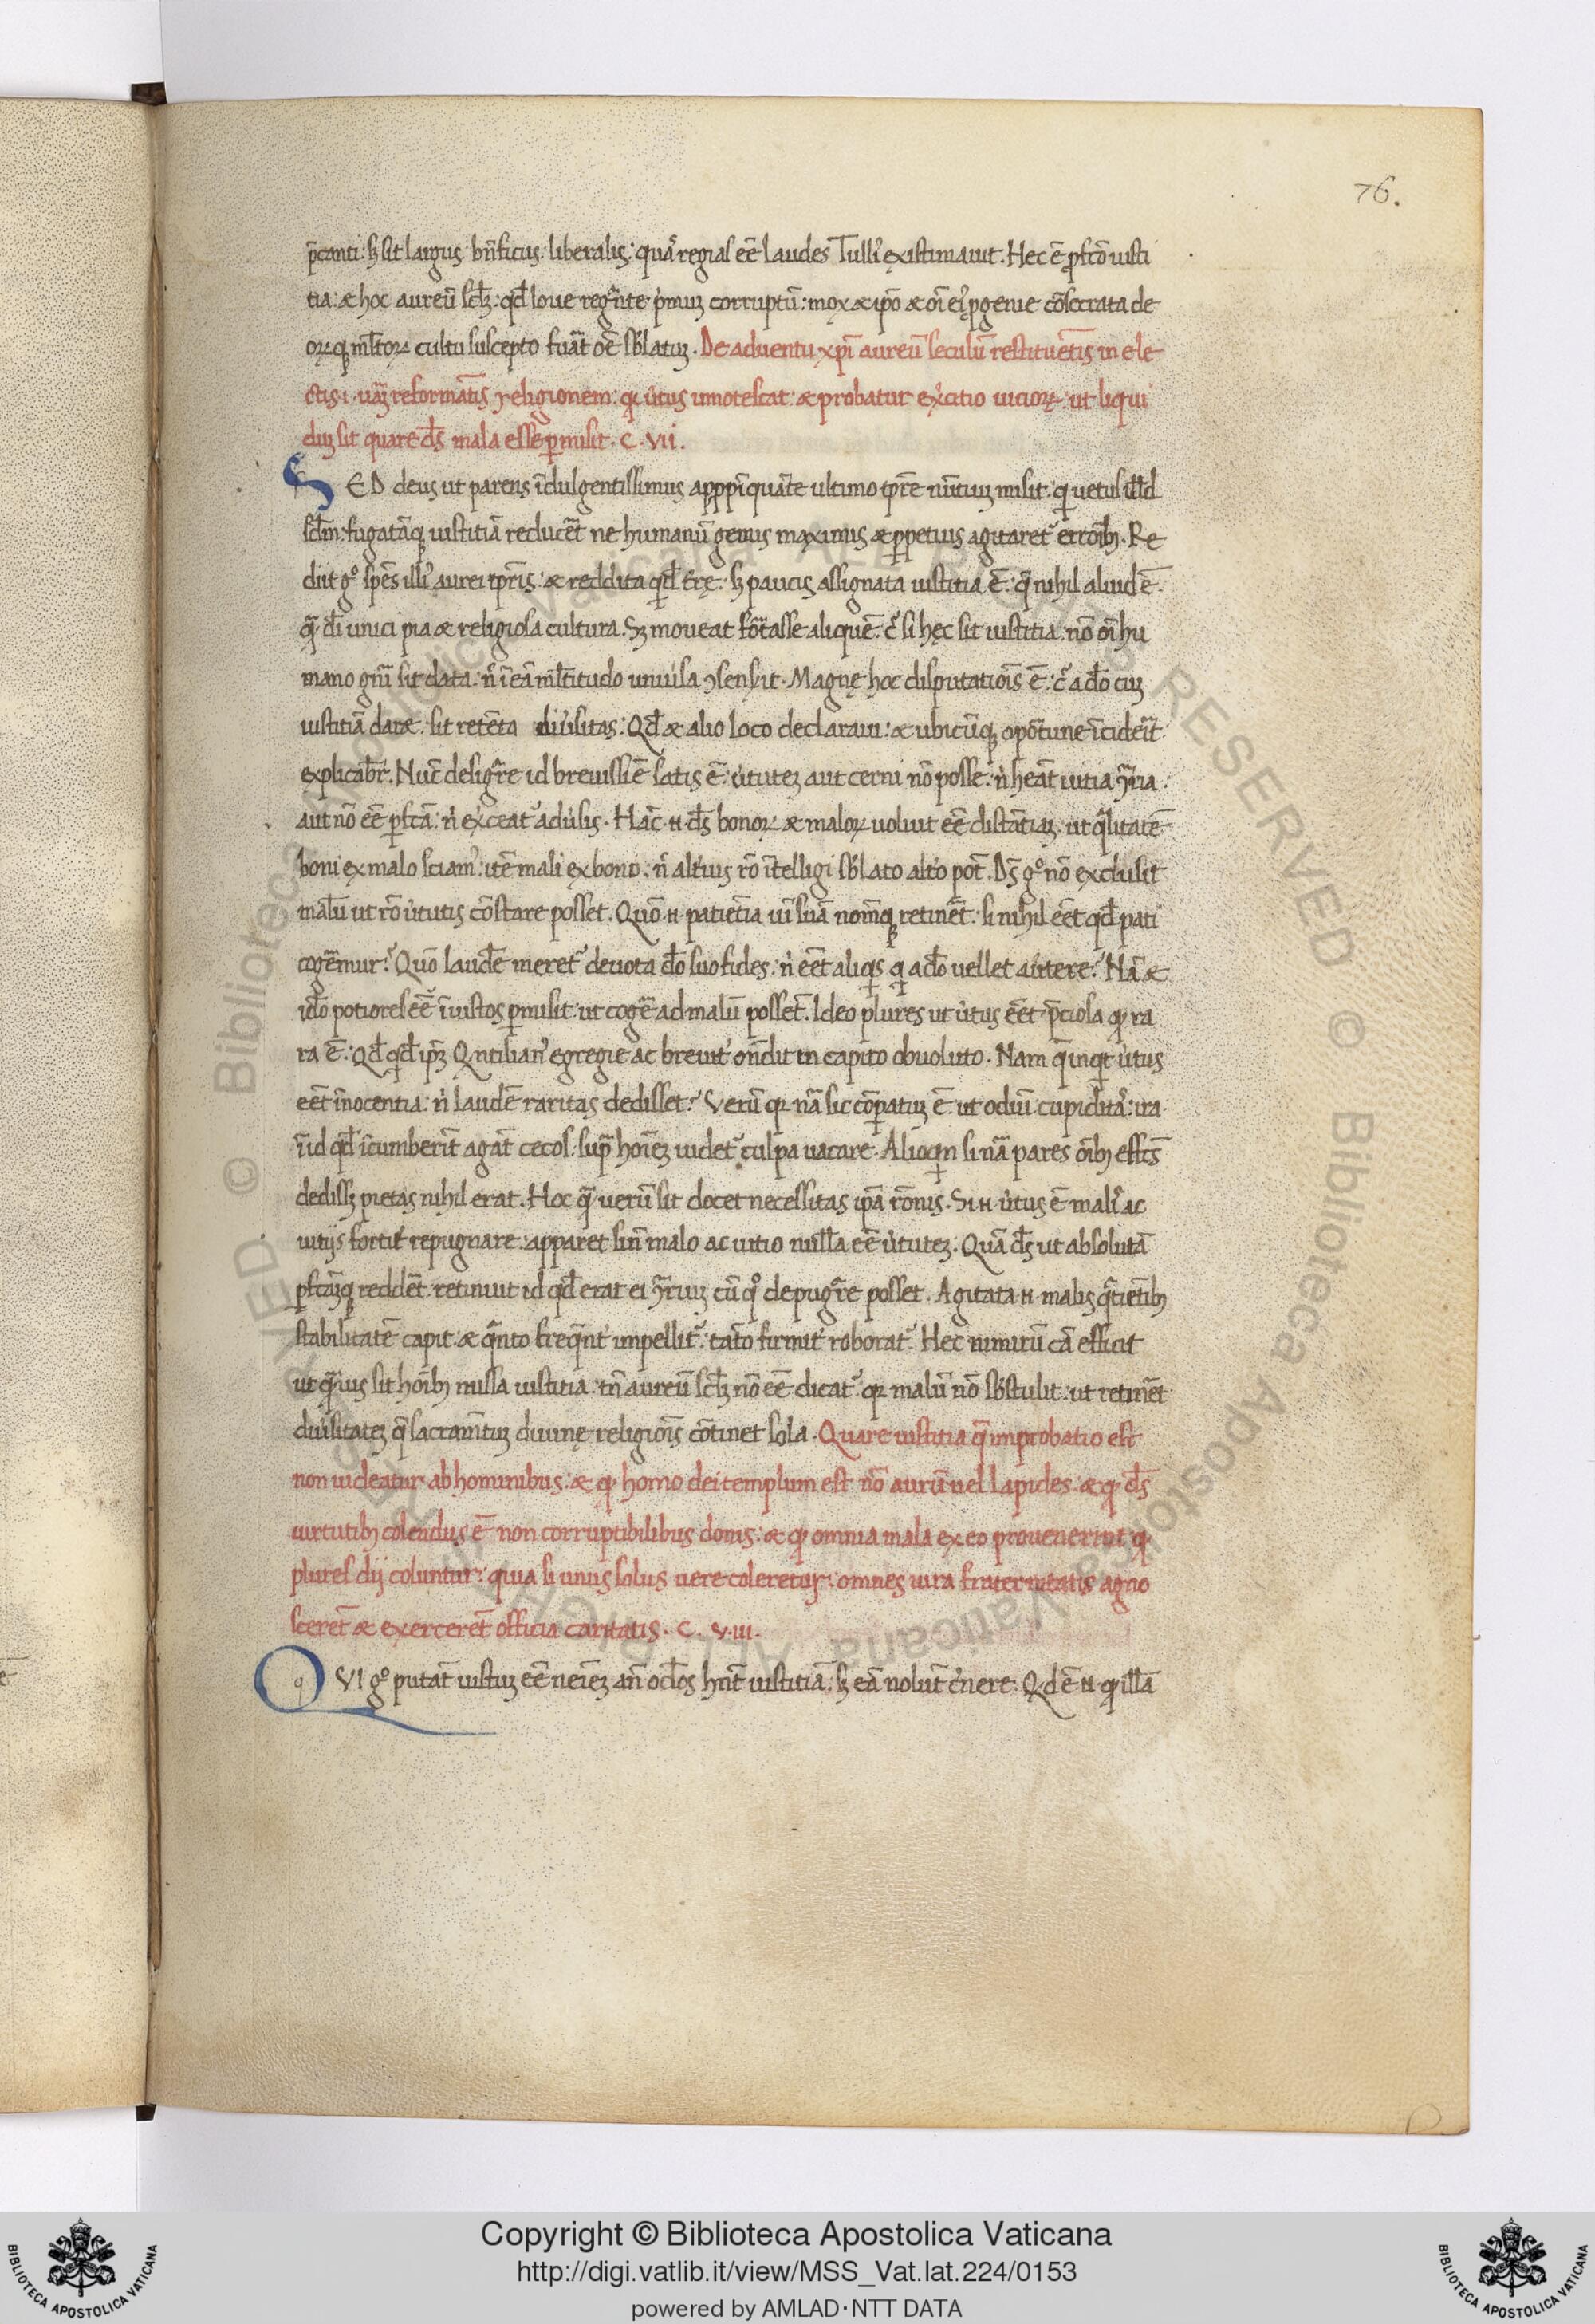 76.
p̄canti: sʒ sit largus. bn̄ficus. liberalis: quas regias eē laudes Tulli' existimauit. Hec ē ꝓfcō iusti
tia: & hoc aureū scl̄ʒ. qd̄ Ioue regn̄te pimuʒ corruptū: mox & ipō & oī ei' ꝓgenie cōsecrata de
orꝝq; ml̄torꝝ cultu suscepto fuāt oē sb̄latuʒ. De aduentu xp̄i aureū seculū restituētis in ele
ctis. i. uāʒ reformātis religionem: qr uirtus innotescat & probatur exercitio uiciorꝝ. ut liqui
duʒ sit quare ds̄ mala esse ꝑmisit. C. VII.
SED deus ut parens īdulgentissimus appropīquāte ultimo tp̄re nūtiuʒ misit: qui uetus illd̄
scl̄m: fugatāq; iustitiā reducēt ne humanū genus maximis & ꝑpetuis agitaret' errorib;. Re
diit gº spēs illi' aurei tp̄ris: & reddita qd̄ tr̄ę. sʒ paucis assignata iustitia ē: q̄ nihil aliud ē.
q̄. dī unici pia & religiosa cultura. Sʒ moueat fortasse aliquē. cur si hęc sit iustitia. nō oī hu
mano gn̄i sit data. n̄ ī eā ml̄titudo uniuersa ꝯsensit. Magnę hoc disputatiōis ē: cur a dō cuʒ
iustitiā daret. sit retēta diuersitas: Qd̄ & alio loco declaraui: & ubicūq; oportune īciderit
explicabr̄. Nūc designare id breuissīe satis ē. uirtuteʒ aut cerni nō posse. nisi heāt uitia ꝯtraria.
aut nō eē ꝑfctā. nisi exerceat' aduersis. Hāc .n. ds̄ bonorꝝ & malorꝝ uoluit eē distātiaʒ. ut qualitatē
boni ex malo sciam': itē mali ex bono. nec alterius rō ītelligi sb̄lato altero pōt. Ds̄ gº nō exclusit
malū ut rō uirtutis cōstare posset. Quō .n. patiētia uī suā nomēq; retinēt. si nihil eēt qd̄ pati
cogēmur? Quō laudē meret' deuota dō suo fides. nisi eēt aliqis qi a dō uellet auertere? Nā &
idō potiores eē īiustos ꝑmisit. ut cogere ad malū possēt. Ideo plures ut uirtus eēt p̄ciosa qr ra
ra ē. Qd̄ qd̄ ipʒ Qntilian' egregie ac breuit' on̄dit in capite obuoluto. Nam q̄ inqt uirtus
eēt īnocentia. nisi laudē raritas dedisset? Verū qr nā sic cōꝑatuʒ ē. ut odiū. cupiditas. ira.
ī id qd̄ īcumberīt agāt cecos. sup̄ hoīeʒ uidet' culpa uacare. Alioqn si nā pares oīb; effcs̄
dedissʒ pietas nihil erat. Hoc q̄ uerū sit docet necessitas ipā rōnis. Si .n. uirtus ē malis ac
uitijs fortit' repugnare. apparet sin̄ malo ac uitio nullā eē uirtuteʒ. Quā ds̄ ut absolutā
ꝑfctāq; reddēt. retinuit id qd̄ erat ei ꝯtrariuʒ cū qº depugnare posset. Agitata .n. malis q̄tiētib;
stabilitatē capit. & q̄nto freq̄nt' impellit'. tāto firmit' roborat'. Hec nimirū cā efficit
ut quāuis sit hoīb; missa iustitia. tn̄ aureū scl̄ʒ nō eē dicat'. qr malū nō sb̄stulit. ut retinēt
diuersitateʒ q̄ sacramētuʒ diuinę religiōis cōtinet sola. Quare iustitia q̄ improbatio est
non uideatur ab hominibus. & qr homo dei templum est nō aurū uel lapides. & qr ds̄
uirtutib; colendus ē non corruptibilibus donis: & qr omnia mala ex eo prouenerint qr
plures dij coluntur: quia si unus solus uere coleretur: omnes iura fraternitatis agno
scerēt & exercerēt officia caritatis. C. VIII.
QVI gº putāt iustuʒ eē neīeʒ an̄ ocl̄os hn̄t iustitiā. sʒ eā nolūt cernere. Qd ē .n. qr illā
Copyright © Biblioteca Apostolica Vaticana
http://digi.vatlib.it/view/MSS_Vat.lat.224/0153
powered by AMLAD·NTT DATA